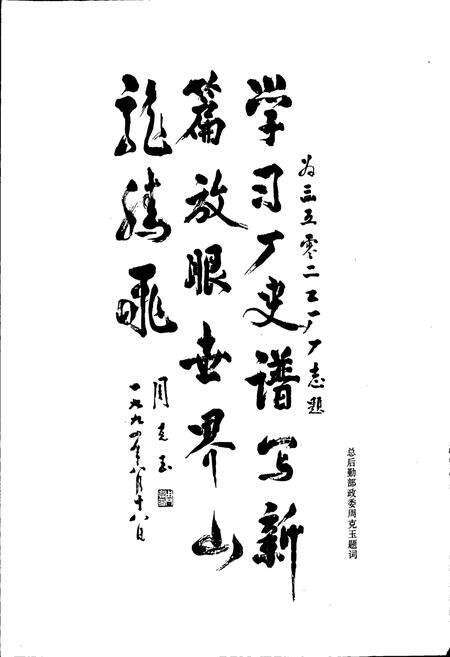 为三五零二工厂厂志题
学习厂史谱写新
篇放眼世界山
龍騰飛
周克玉
一九九四年八月十八日
总后勤部政委周克玉题词